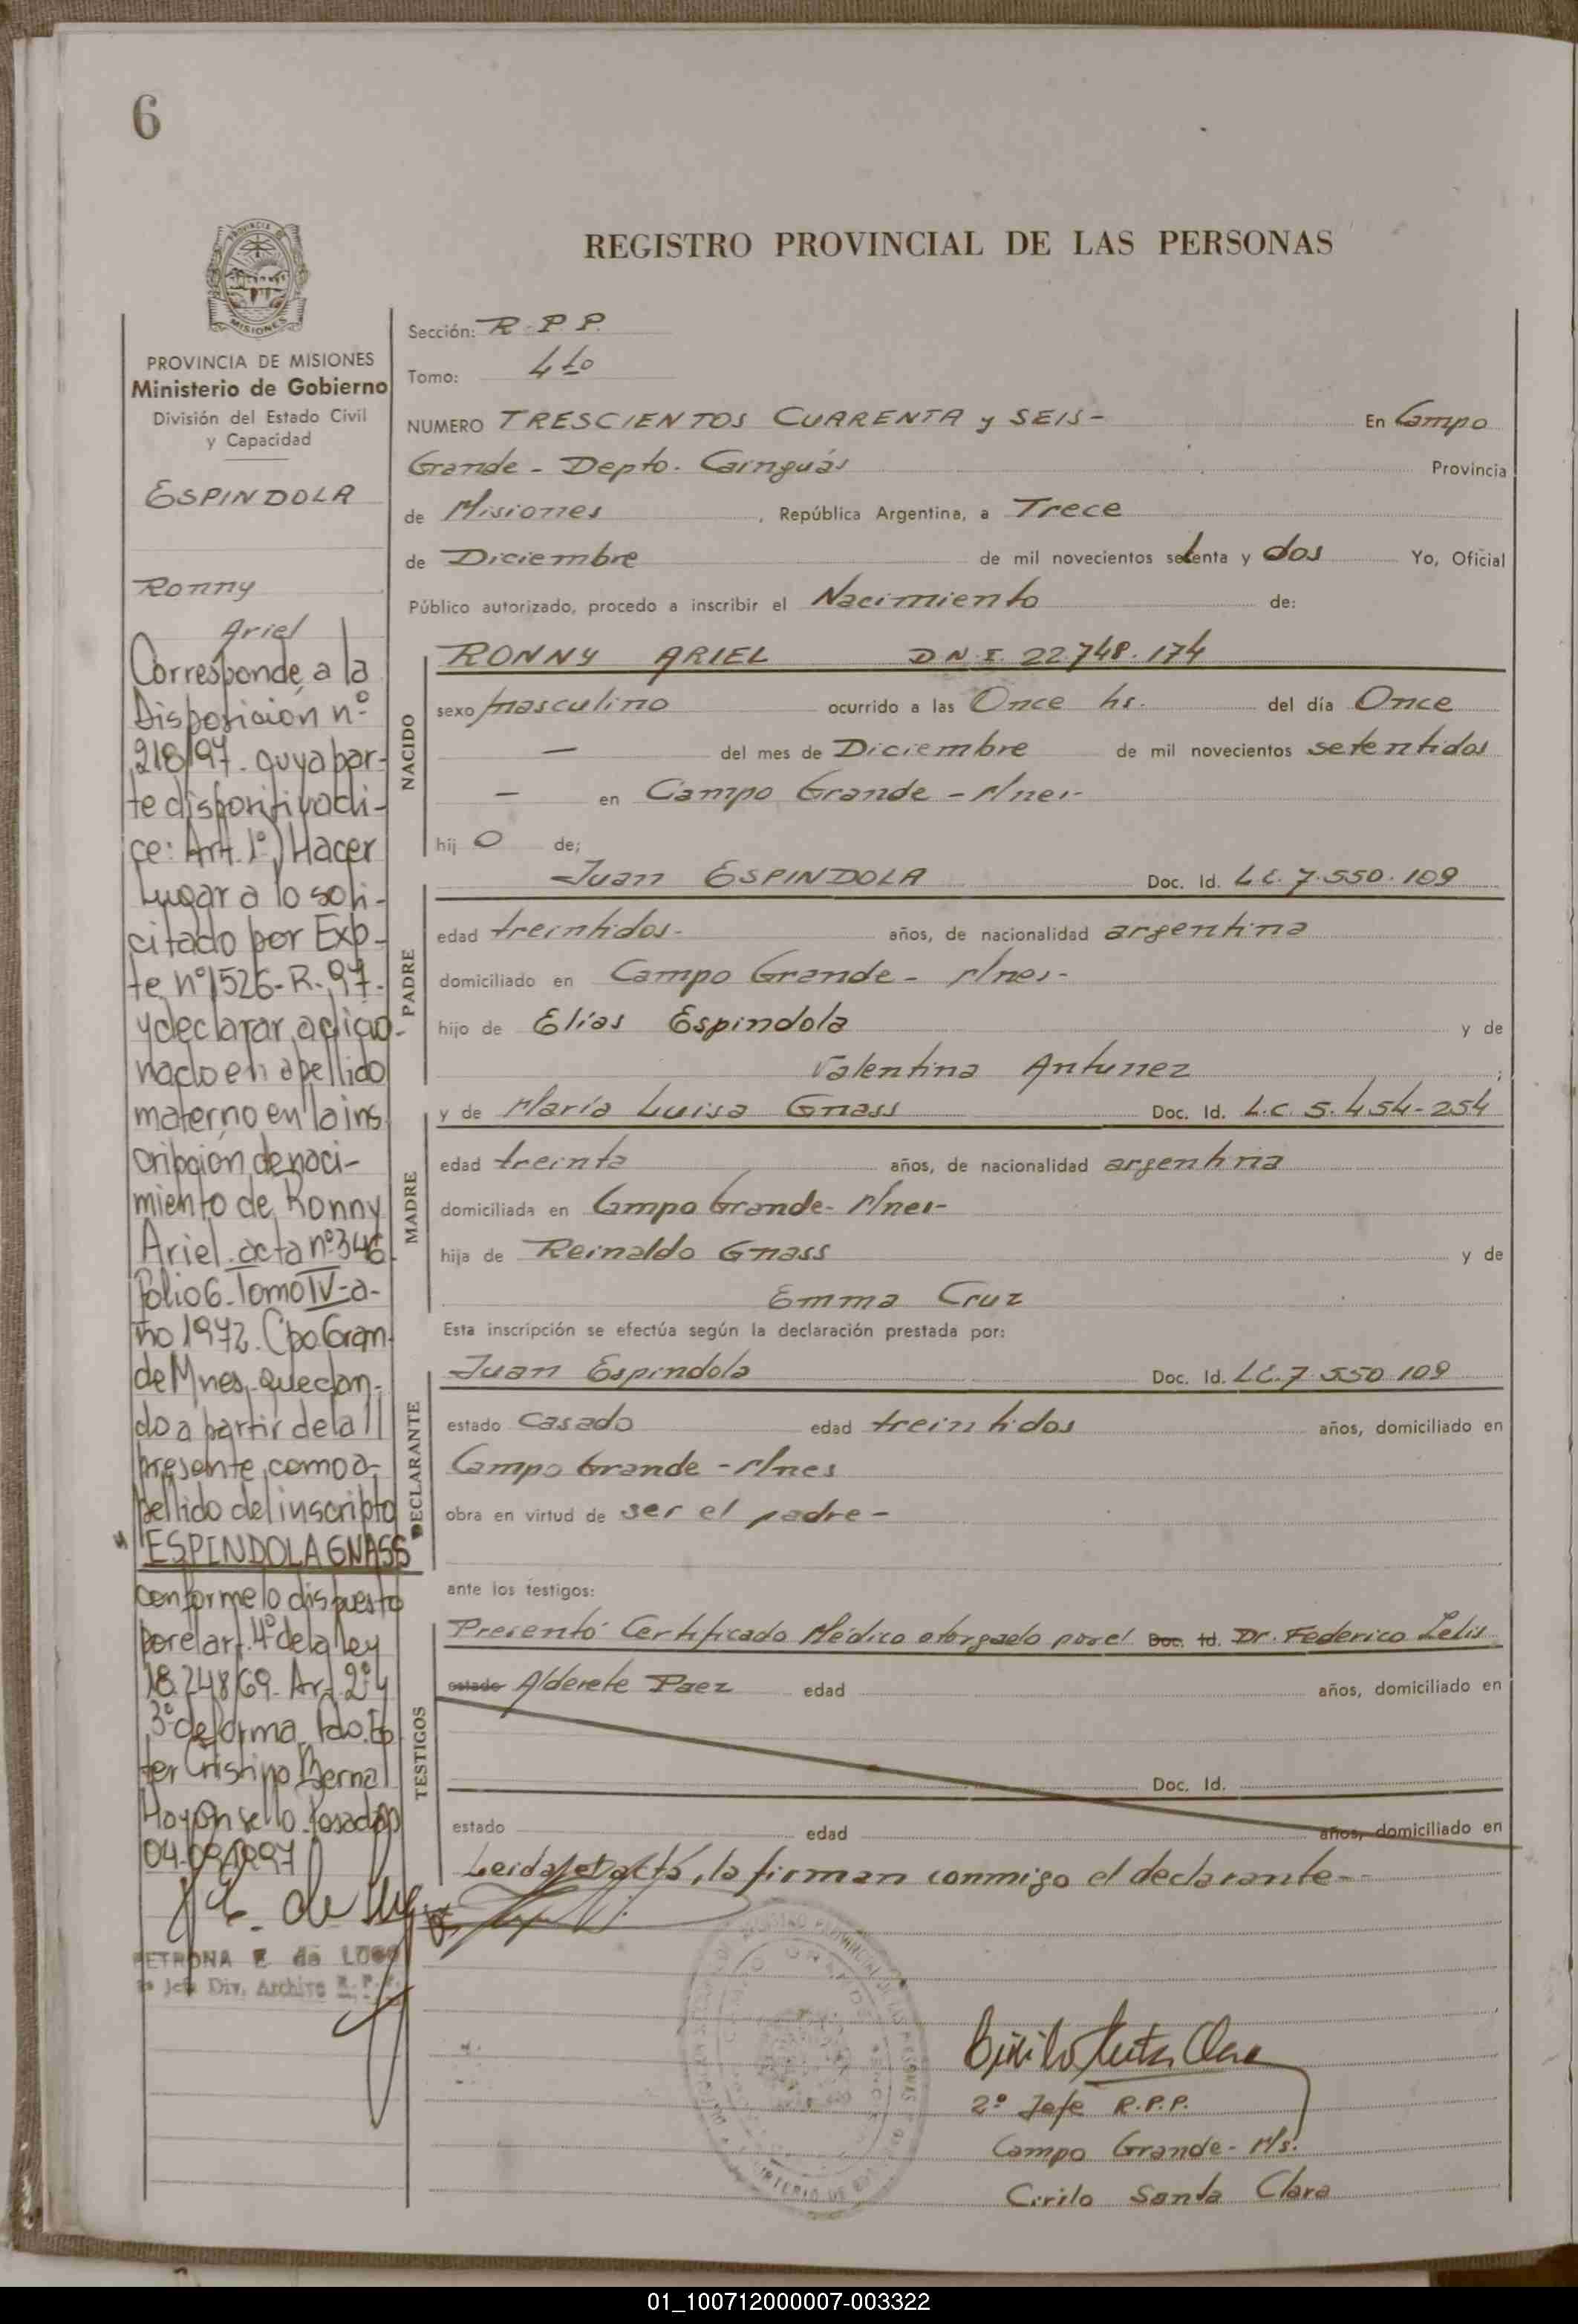 6
PROVINCIA DE
MISIONES
REGISTRO PROVINCIAL DE LAS PERSONAS
PROVINCIA DE MISIONES
Ministerio de Gobierno
División del Estado Civil
y Capacidad
ESPINDOLA
Ronny
Ariel
Corresponde a la
Disposición nº
218/97. cuya par-
te dispositiva di-
ce: Art. 1º) Hacer
Lugar a lo soli-
citado por Exp-
te nº 1526-R-97-
y declarar adicio-
nado el apellido
materno en la ins
cripción de naci-
miento de Ronny
Ariel. acta nº 346
Folio 6. Tomo IV-a-
ño 1972. Cpo. Gran-
de Mnes, quedan-
do a partir de la
presente como a-
pellido del inscripto
"ESPINDOLA GNASS"
conforme lo dispuesto
por el art. 4º de la ley
18.248/69. Art. 2º y
3º de forma. Fdo. Es
ter Cristina Bernal
Hay un sello. Posadas
04-09-1997
PETRONA E de LUGO
Jefe Div. Archivo R. P. P.
Sección: R. P. P.
Tomo: 4to
NUMERO TRESCIENTOS CUARENTA y SEIS- En Campo
Grande - Depto. Cainguás Provincia
de Misiones , República Argentina, a Trece
de Diciembre de mil novecientos setenta y dos Yo, Oficial
Público autorizado, procedo a inscribir el Nacimiento de:
NACIDO
RONNY ARIEL D N I. 22.748.174
sexo masculino ocurrido a las Once hs. del día Once
— del mes de Diciembre de mil novecientos setentidos
— en Campo Grande - Mnes-
hij o de;
PADRE
Juan ESPINDOLA Doc. Id. L.E. 7.550.109
edad treintidos- años, de nacionalidad argentina
domiciliado en Campo Grande - Mnes-
hijo de Elías Espindola y de
Valentina Antunez ;
MADRE
y de María Luisa Gnass Doc. Id. L.C. 5.454-254
edad treinta años, de nacionalidad argentina
domiciliada en Campo Grande- Mnes-
hija de Reinaldo Gnass y de
Emma Cruz
Esta inscripción se efectúa según la declaración prestada por:
DECLARANTE
Juan Espindola Doc. Id. L.E. 7.550.109
estado Casado edad treintidos años, domiciliado en
Campo Grande - Mnes
obra en virtud de ser el padre-
ante los testigos:
TESTIGOS
Presentó Certificado Médico otorgado por el Doc. Id. Dr. Federico Lelis
estado Alderete Paez edad años, domiciliado en
Doc. Id.
estado edad años, domiciliado en
Leida el acta, la firman conmigo el declarante-
Cirilo Santa Clara
2º Jefe R.P.P.
Campo Grande- Ms.
Cirilo Santa Clara
01_100712000007-003322